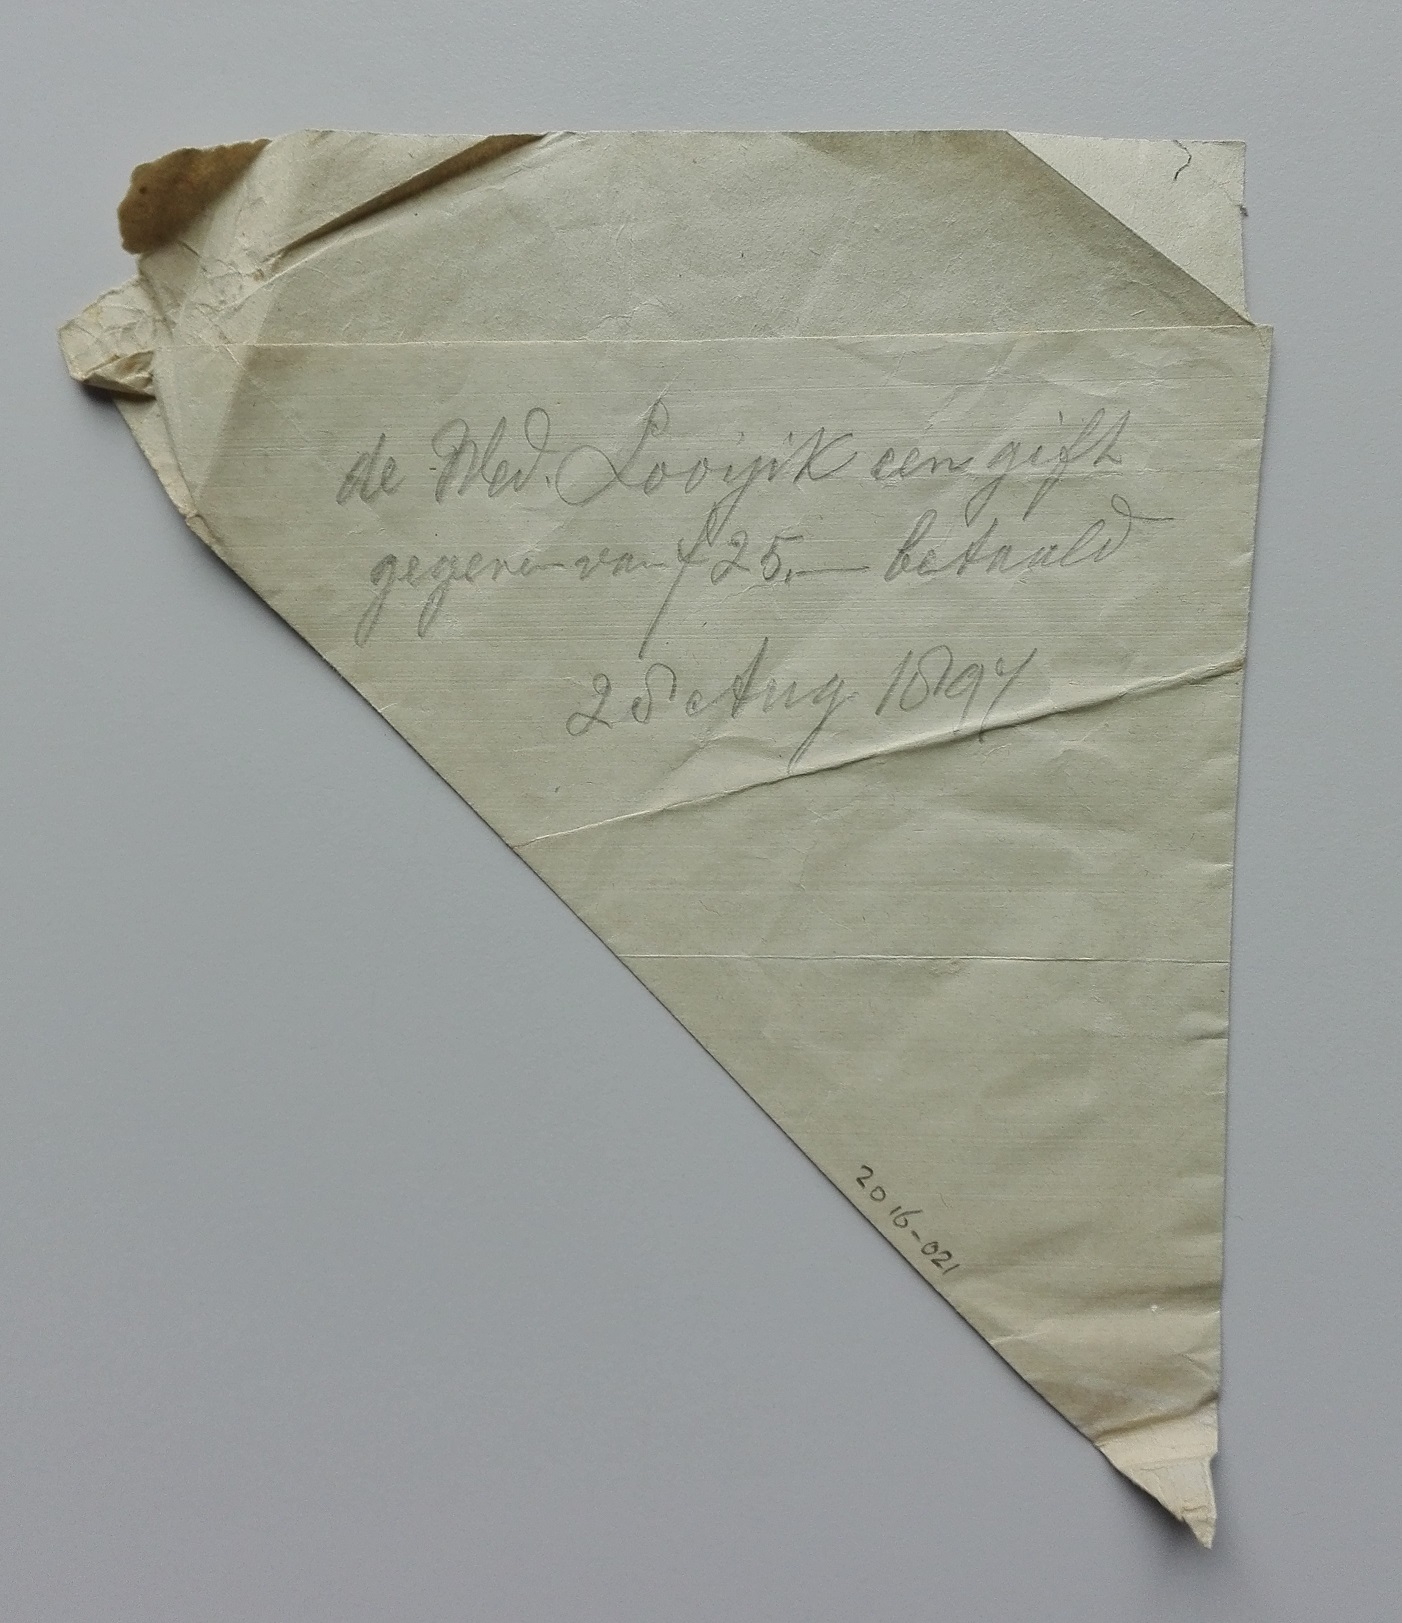 de Wed. Looijik een gift
gegeven van f 25,— betaald
28 Aug 1897
2016-021